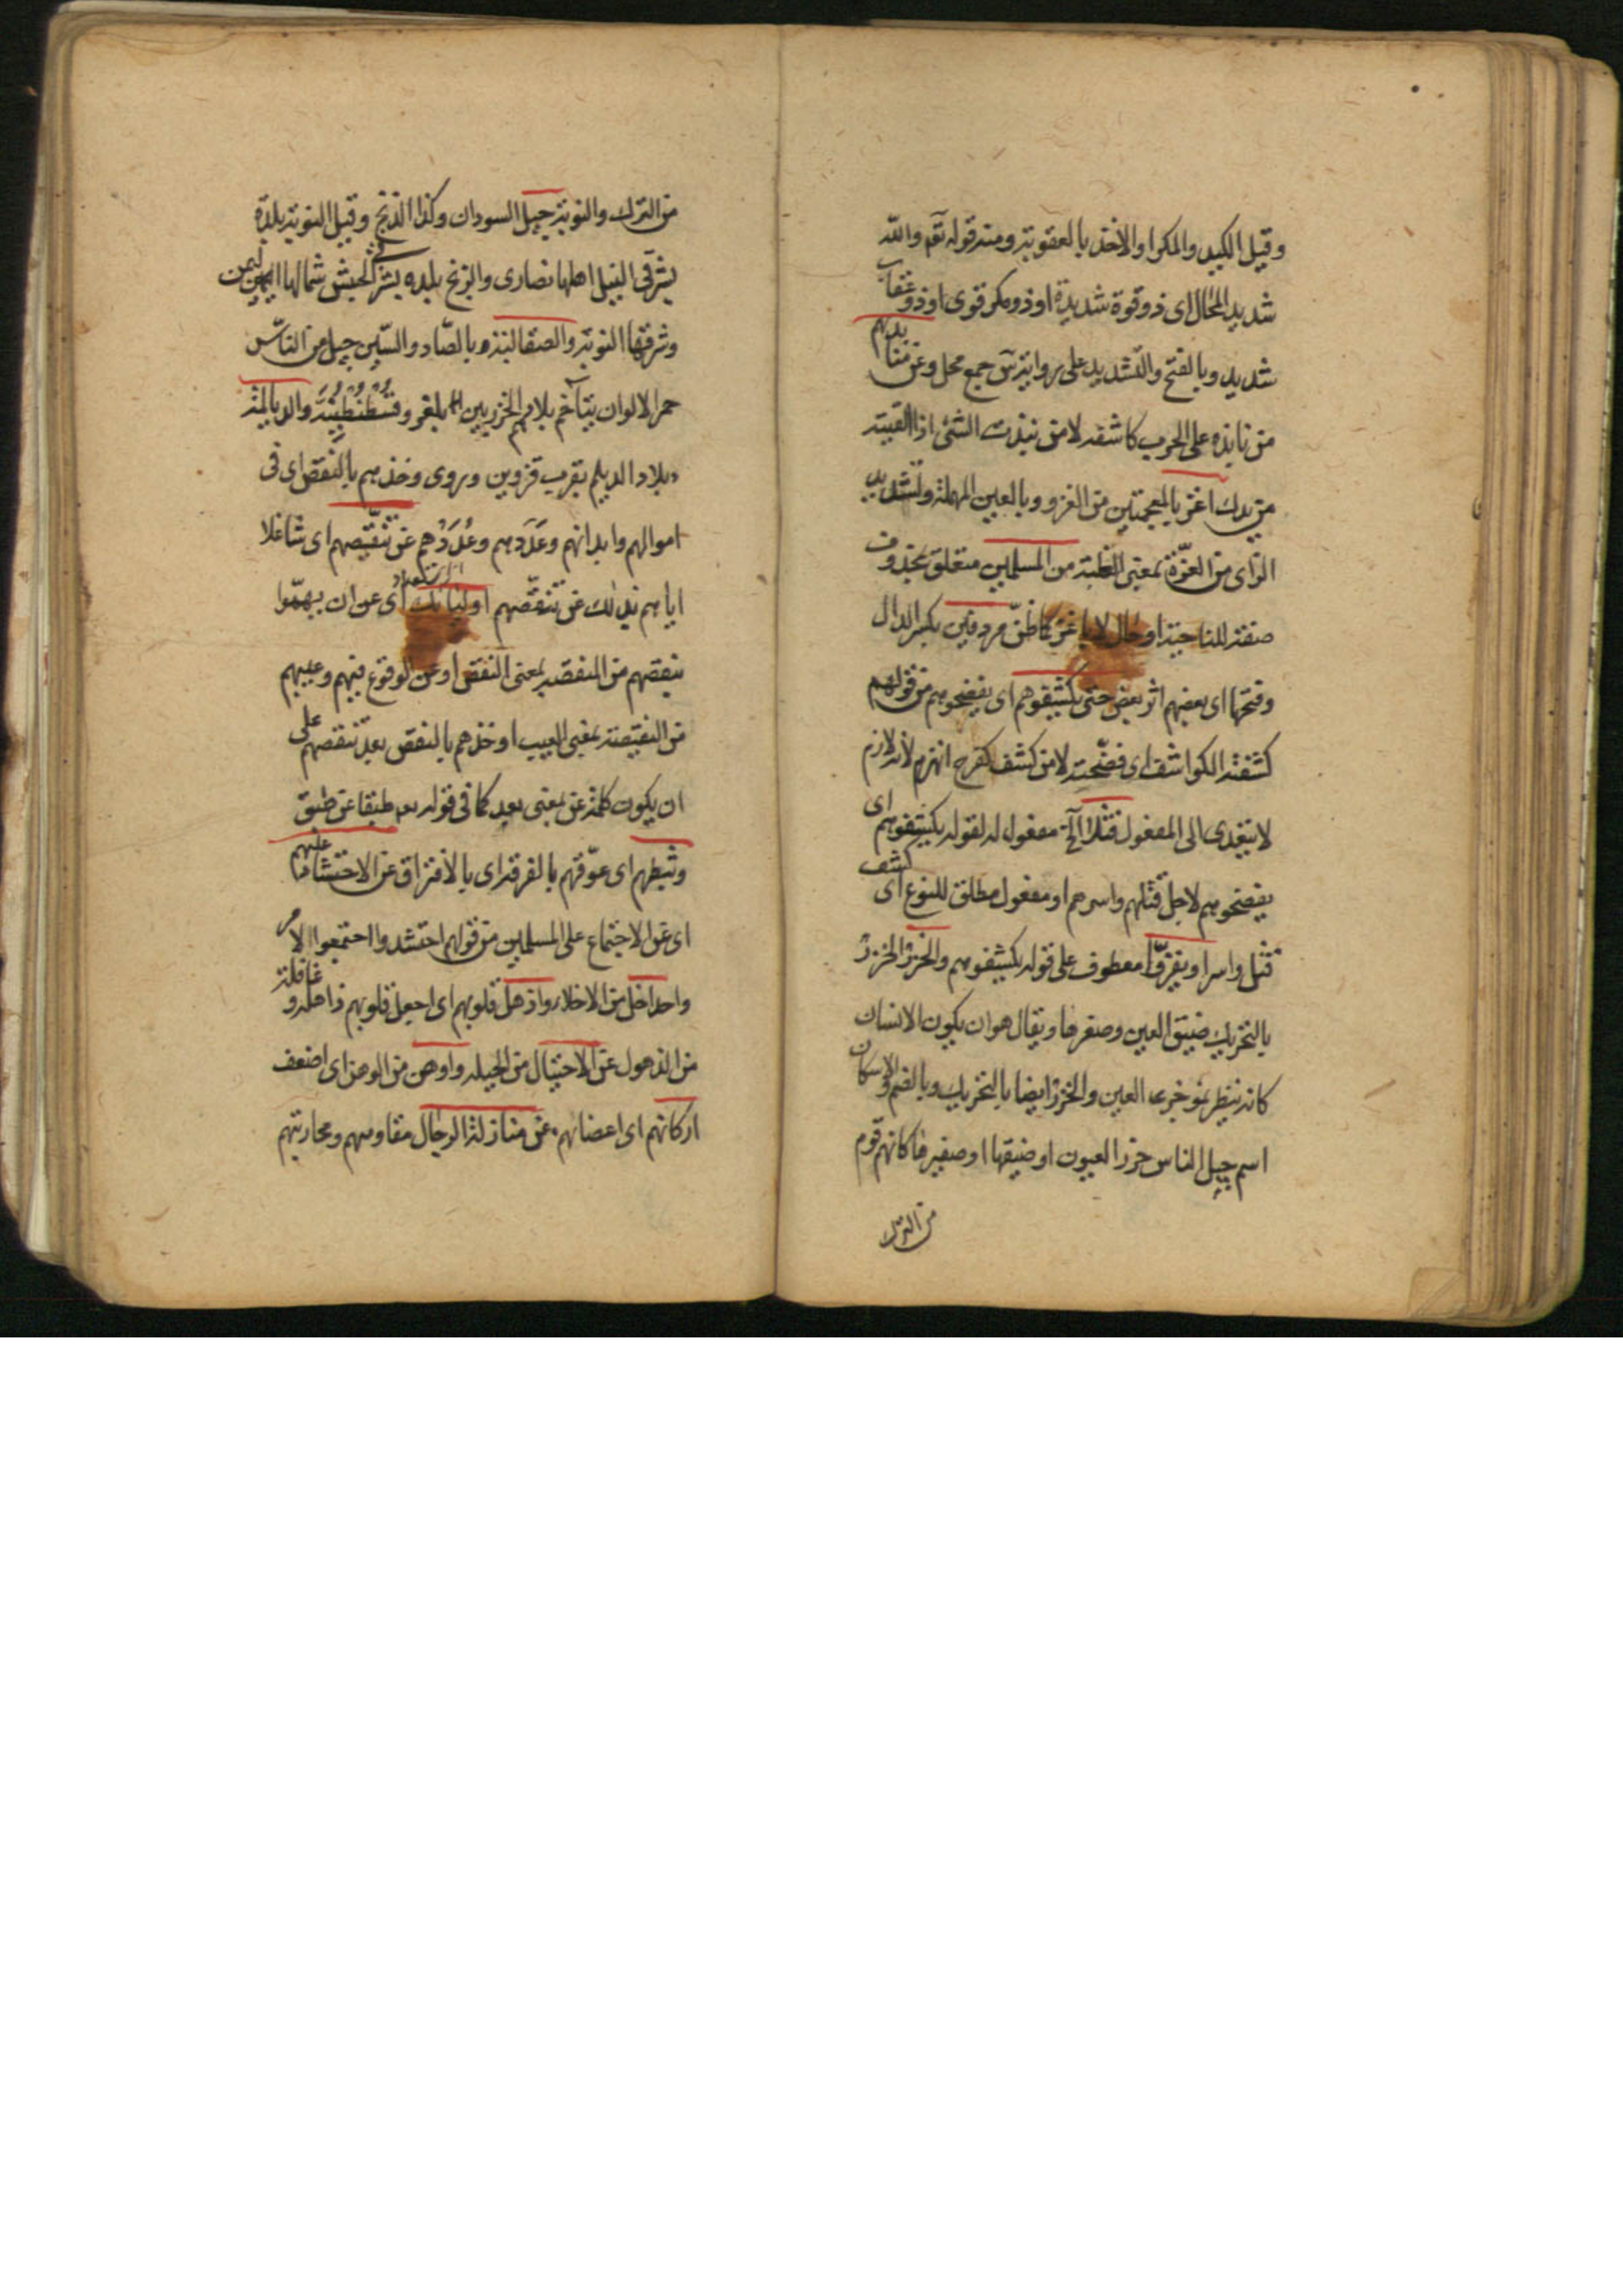 وقيل الكيد والمكر او الاخذ بالعقوبة ومنه قوله تعم والله
شديد المحال اى ذو قوة شديدة او ذو مكر قوى او ذو عقاب
شديد وبالفتح والتشديد على رواية س جمع محل وعن منابذتهم
من نابذه على الحرب كاشفه لا من نبذت الشئ اذا القيته
من يدك اغز بالمعجمتين من الغزو وبالعين المهملة وتشديد
الزاى من العزة بمعنى الغلبة من المسلمين متعلق بمحذوف
صفة للناحية او حال لا باغز كما ظن مردفين بكسر الدال
وفتحها اى بعضهم اثر بعض حتى يكشفوهم اى يفضحوهم من قولهم
كشفته الكواشف اى فضحته لا من كشف كفرح انهزم لأنه لازم
لا يتعدى الى المفعول قتلا الخ مفعول له لقوله يكشفوهم اى
يفضحوهم لاجل قتلهم واسرهم او مفعول مطلق للنوع اى كشف
قتل واسر او يقروا معطوف على قوله يكشفوهم والخزر الخزر
بالتحريك ضيق العين وصغرها ويقال هو ان يكون الانسان
كانه ينظر بمؤخرها العين والخزر ايضا بالتحريك وبالضم والاسكان
اسم جيل الناس خزر العيون او ضيقها او صغيرها كانهم قوم
من الترك
من الترك والنوبة جيل السودان وكذا الزنج وقيل النوبة بلدة
بشرقى النيل اهلها نصارى والزنج بلده بشرقى الحبش شمالها اليمن
وشرقها النوبة والصقالبة بالصاد والسين جيل من الناس
حمر الالوان يتاخم بلادهم الخزر بين بلغر وقسطنطينية والديالمة
بلاد الديلم بقرب قزوين وروى وخذهم بالنقص اى فى
اموالهم وابدانهم وعَدَدهم وعُدَدهم عن تنقيصهم اى شاغلا
اياهم بذلك عن تنقصهم اوليائك اى عن ان يهموا
بنقصهم من النقص بمعنى النقص او عن الوقوع فيهم وعيبهم
من النقيصة بمعنى العيب او خذهم بالنقص بعد تنقصهم على
ان يكون كلمة عن بمعنى بعد كما فى قوله طبقا عن طبق
وثبطهم اى عوقهم بالفرقة اى بالافتراق عن الاحتشاد عليهم
اى عن الاجتماع على المسلمين من قولهم احتشدوا اجتمعوا لامر
واحد اخل من الاخلاء واذهل قلوبهم اى اجعل قلوبهم ذاهلة وغافلة
من الذهول عن الاحتيال من الحيلة واوهن من الوهن اى اضعف
اركانهم اى اعضائهم عن منازلة الرجال مقاومتهم ومحاربتهم